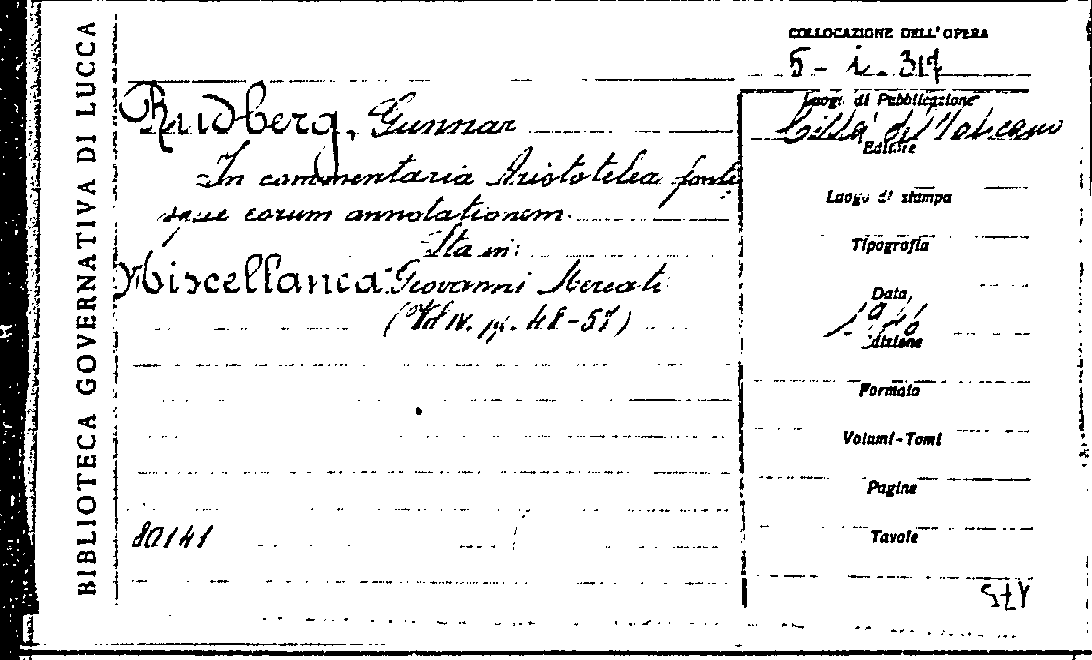 BIBLIOTECA GOVERNATIVA DI LUCCA
COLLOCAZIONE DELL'OPERA
5 - i. 317
Rudberg, Gunnar
In commentaria Aristotelea fonte
sque eorum annotationem
Sta in:
Miscellanea Giovanni Mercati
(Vol IV. pp. 48-57)
80141
Luogo di Pubblicazione
Città del Vaticano
Editore
Luogo di stampa
Tipografia
Data,
1946
Edizione
Formato
Volumi-Tomi
Pagine
Tavole